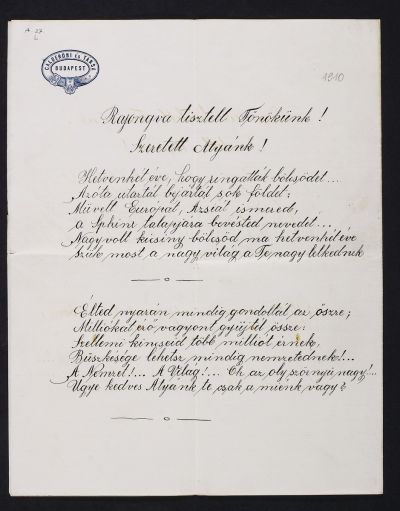 A 27
L
CALDERONI ÉS TÁRSA
BUDAPEST
1910
Rajongva tisztelt Főnökünk!
Szeretett Atyánk!
Hetvenhét éve, hogy ringatták bölcsődet...
Azóta utaztál bejártál sok földet:
Művelt Európát, Ázsiát ismered,
a Sphinx talapjára bevésted neved...
Nagy volt kicsiny bölcsőd, ma hetvenhét éve
szűk most a nagy világ a Te nagy lelkednek
Élted nyarán mindig gondoltál az őszre;
Milliókat érő vagyont gyűjtél össze:
Szellemi kincseid több milliót érnek,
Büszkesége lehetsz mindig nemzetednek!...
A Nemzet!... A Világ!... Oh az oly szörnyű nagy!...
Ugye kedves Atyánk te csak a miénk vagy?